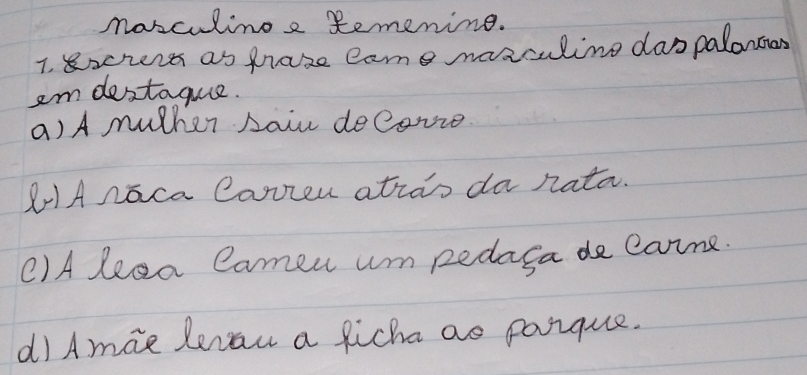 Masculino e Femenino.
1. Escreva as frase com o masculino das palavras
em destaque.
a) A mulher saiu do carro
b) A vaca correu atrás da rata.
c) A leoa comeu um pedaça de carne.
d) A mãe levou a ficha ao parque.